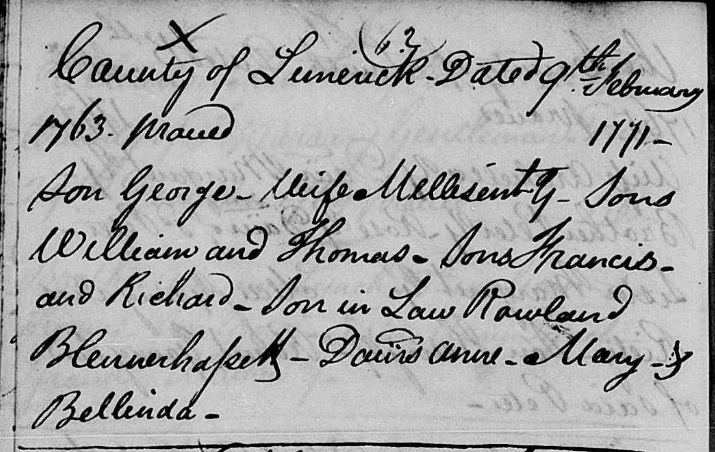 X (63)
County of Limerick - Dated 9th February
1763. proved 1771 -
Son George - Wife Mellisent - Sons
William and Thomas - Sons Francis -
and Richard - Son in Law Rowland
Blennerhassett - Daurs Anne - Mary - &
Bellinda -